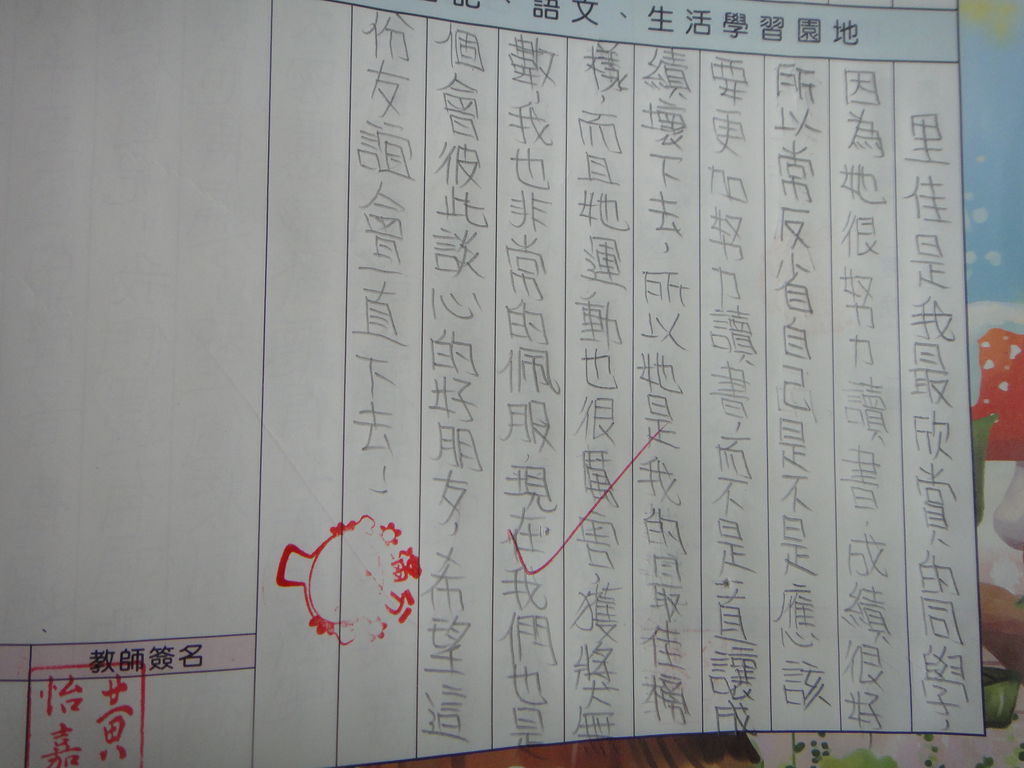 記、語文、生活學習園地
里佳是我最欣賞的同學，
因為她很努力讀書，成績很好
所以常反省自己是不是應該
要更加努力讀書，而不是一直讓成
績壞下去，所以她是我的最佳榜
樣，而且她運動也很厲害，獲獎無
數，我也非常的佩服，現在我們也是
個會彼此談心的好朋友，希望這
份友誼會一直下去！
教師簽名
黃
怡嘉